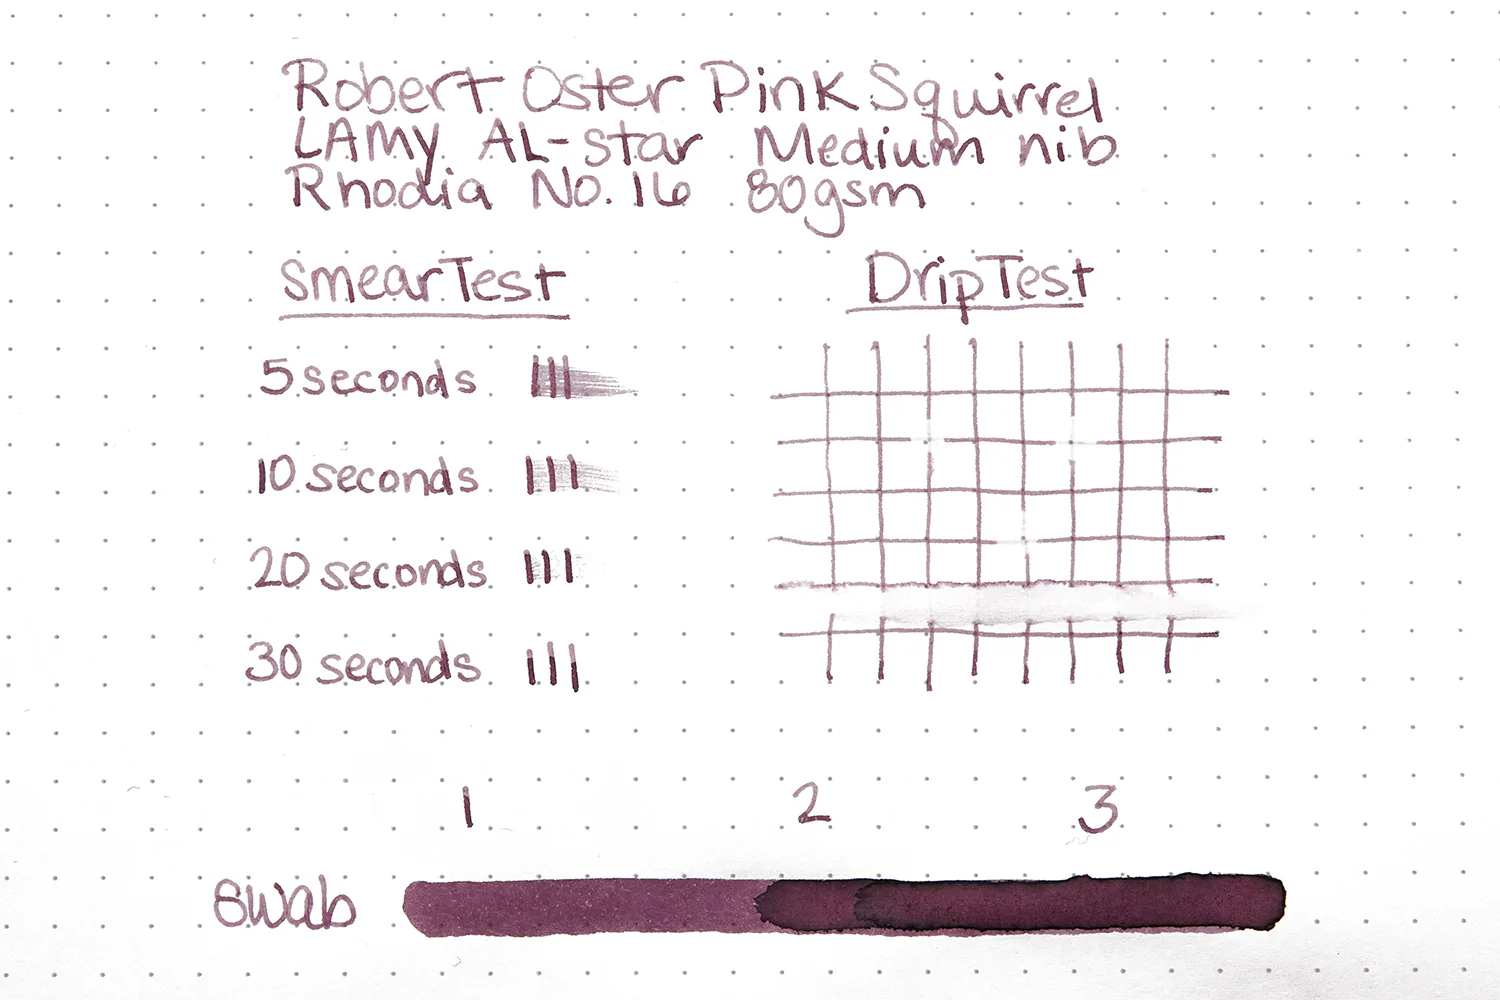 Robert Oster Pink Squirrel
LAMY AL-star Medium nib
Rhodia No. 16 80gsm
Smear Test
Drip Test
5 seconds
10 seconds
20 seconds
30 seconds
1 2 3
Swab